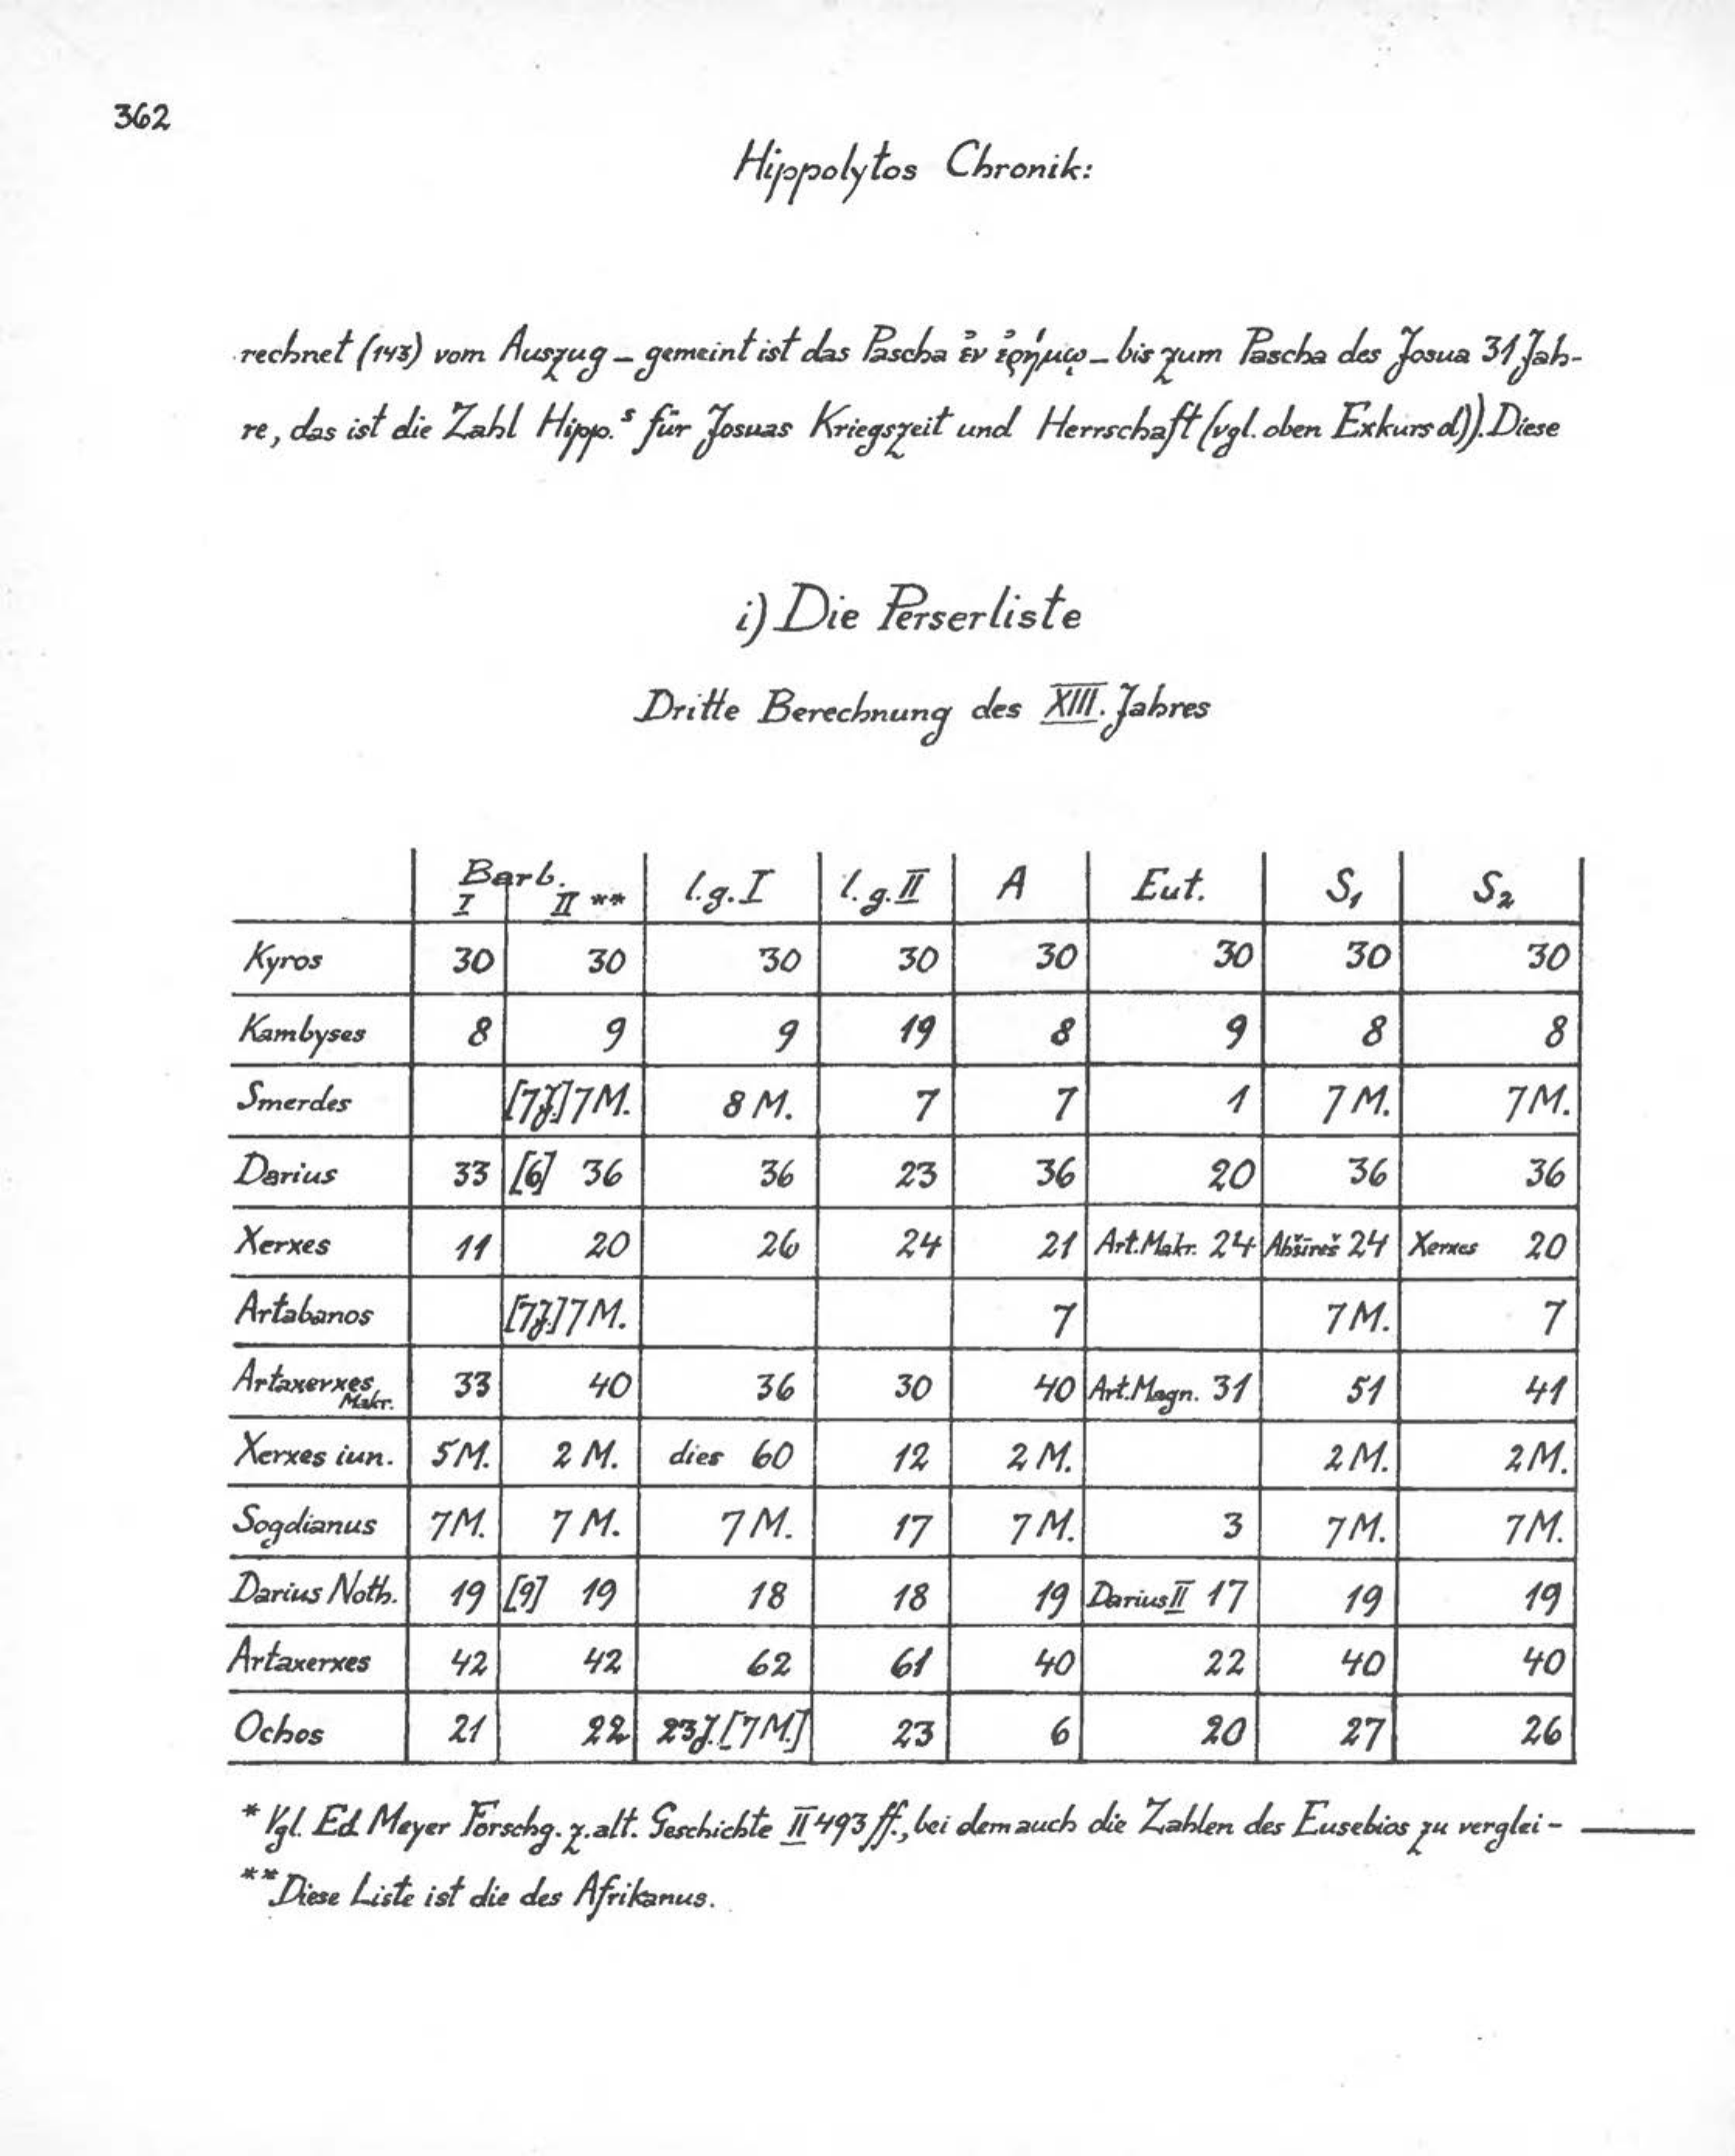 362
Hippolytos Chronik:
rechnet (143) vom Auszug – gemeint ist das Pascha ἐν ἐρήμῳ – bis zum Pascha des Josua 31 Jah-
re, das ist die Zahl Hipp.s für Josuas Kriegszeit und Herrschaft (vgl. oben Exkurs d)). Diese
i) Die Perserliste
Dritte Berechnung des XIII. Jahres
Barb. I II ** l.g. I l.g. II A Eut. S1 S2
Kyros 30 30 30 30 30 30 30 30
Kambyses 8 9 9 19 8 9 8 8
Smerdes [7 J.] 7 M. 8 M. 7 7 1 7 M. 7 M.
Darius 33 [6] 36 36 23 36 20 36 36
Xerxes 11 20 26 24 21 Art. Makr. 24 Abšīreš 24 Xerxes 20
Artabanos [7 J.] 7 M. 7 7 M. 7
Artaxerxes Makr. 33 40 36 30 40 Art. Magn. 31 51 41
Xerxes iun. 5 M. 2 M. dies 60 12 2 M. 2 M. 2 M.
Sogdianus 7 M. 7 M. 7 M. 17 7 M. 3 7 M. 7 M.
Darius Noth. 19 [9] 19 18 18 19 Darius II 17 19 19
Artaxerxes 42 42 62 61 40 22 40 40
Ochos 21 22 23 J. [7 M.] 23 6 20 27 26
* Vgl. Ed Meyer Forschg. z. alt. Geschichte II 493 ff., bei dem auch die Zahlen des Eusebios zu verglei-
** Diese Liste ist die des Afrikanus.